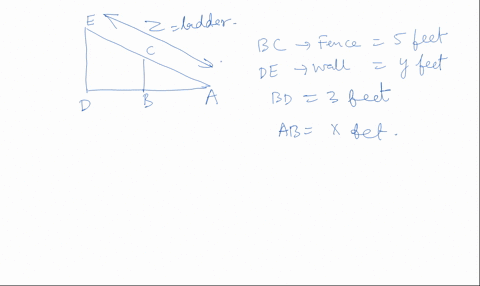 E
Z = ladder.
C
D
B
A
BC → Fence = 5 feet
DE → wall = y feet
BD = 3 feet
AB = x feet.